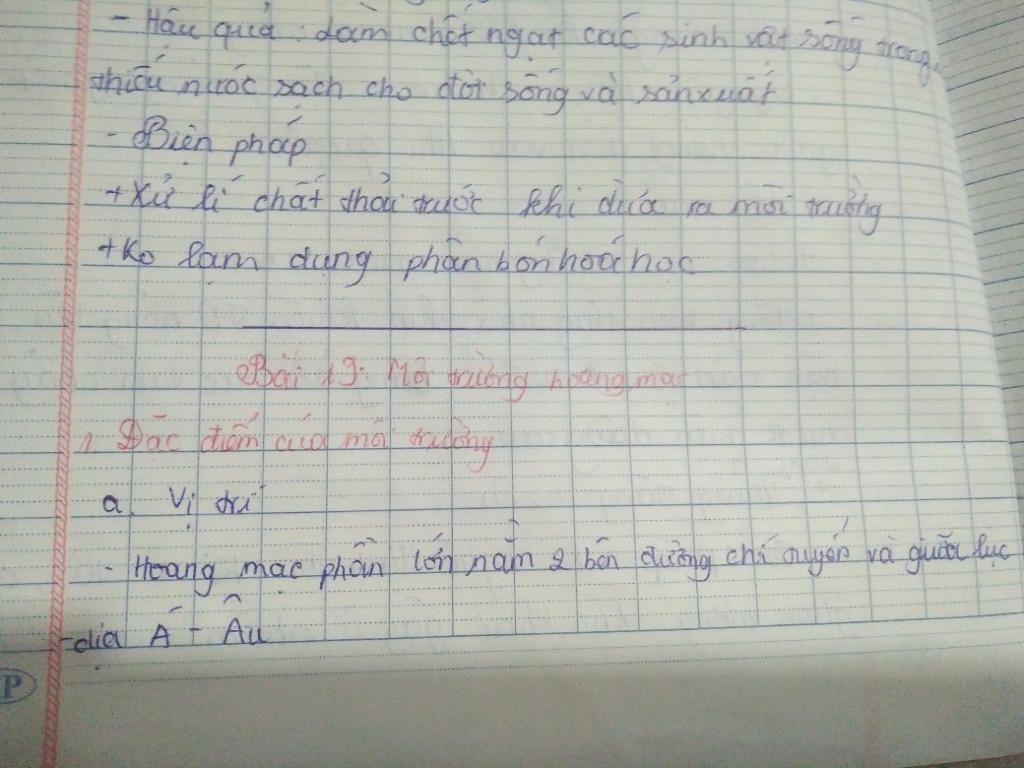 - Hậu quả: làm chết ngạt các sinh vật sống trong,
thiếu nước sạch cho đời sống và sản xuất
- Biện pháp
+ Xử lí chất thải trước khi đưa ra môi trường
+ Ko lạm dụng phân bón hoá học
Bài 19: Môi trường hoang mạc
1. Đặc điểm của môi trường
a. Vị trí
- Hoang mạc phần lớn nằm 2 bên đường chí tuyến và giữa lục
địa Á - Âu
P